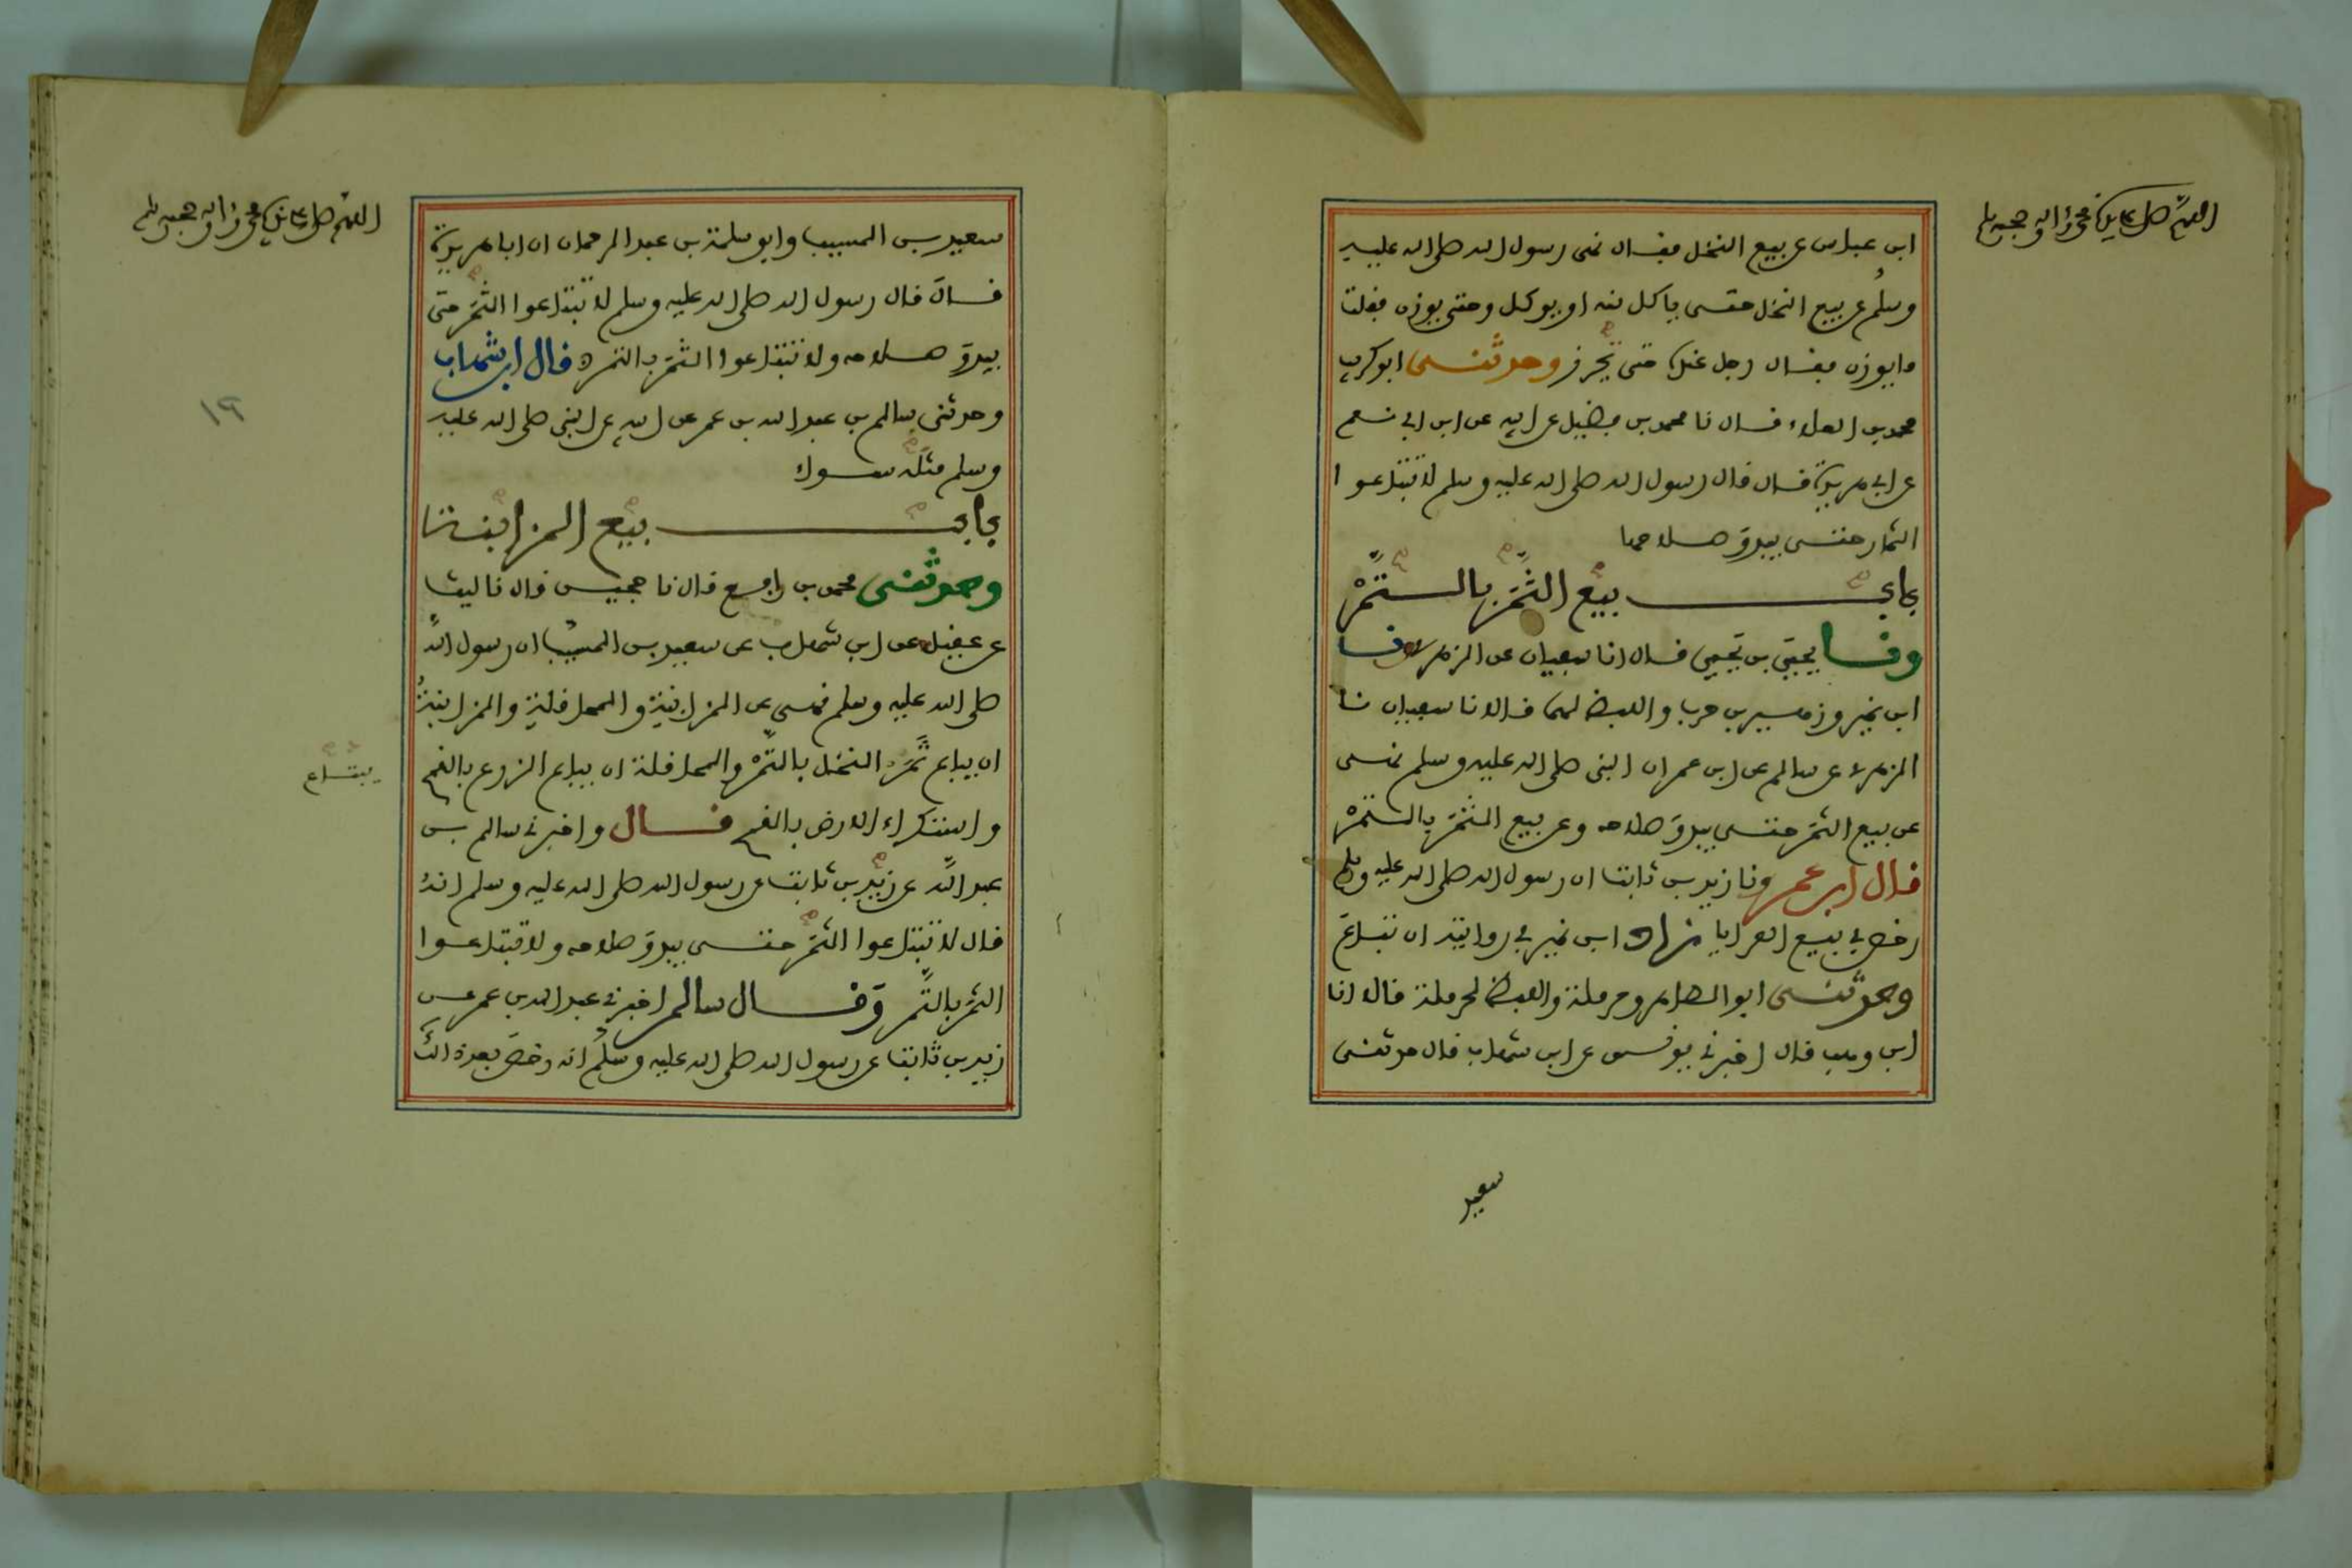 اللهم صل على سيدنا محمد وآله وصحبه وسلم
ابن عباس عن بيع النخل فقال نهى رسول الله صلى الله عليه
وسلم عن بيع النخل حتى ياكل منه او يوكل وحتى يوزن فقلت
ما يوزن فقال رجل عنده حتى يحرز وحدثنى ابو كريب
محمد بن العلاء قال نا محمد بن فضيل عن ابيه عن ابن ابي نعم
عن ابي هريرة قال قال رسول الله صلى الله عليه وسلم لا تبتاعوا
الثمار حتى يبدو صلاحها
باب بيع الثمر بالتمر
ونا يحيى بن يحيى قال انا سفيان عن الزهري ونا
ابن نمير وزهير بن حرب واللفظ لهما قالا نا سفيان نا
الزهري عن سالم عن ابن عمر ان النبي صلى الله عليه وسلم نهى
عن بيع الثمر حتى يبدو صلاحه وعن بيع الثمر بالتمر
قال ابن عمر ونا زيد بن ثابت ان رسول الله صلى الله عليه وسلم
رخص في بيع العرايا زاد ابن نمير في روايته ان تباع
وحدثنى ابو الطاهر وحرملة واللفظ لحرملة قالا انا
ابن وهب قال اخبرني يونس عن ابن شهاب قال حدثنى
سعيد
اللهم صل على سيدنا محمد وآله وصحبه وسلم
سعيد بن المسيب وابو سلمة بن عبد الرحمان ان ابا هريرة
قال قال رسول الله صلى الله عليه وسلم لا تبتاعوا الثمر حتى
يبدو صلاحه ولا تبتاعوا الثمر بالتمر قال ابن شهاب
وحدثنى سالم بن عبد الله بن عمر عن ابيه عن النبي صلى الله عليه
وسلم مثله سواء
باب بيع المزابنة
وحدثنى محمد بن رافع قال نا حجين قال نا ليث
عن عقيل عن ابن شهاب عن سعيد بن المسيب ان رسول الله
صلى الله عليه وسلم نهى عن المزابنة والمحاقلة والمزابنة
ان يباع ثمر النخل بالتمر والمحاقلة ان يباع الزرع بالقمح
واستكراء الارض بالقمح قال واخبرني سالم بن
عبد الله عن زيد بن ثابت عن رسول الله صلى الله عليه وسلم انه
قال لا تبتاعوا الثمر حتى يبدو صلاحه ولا تبتاعوا
الثمر بالتمر وقال سالم اخبرني عبد الله بن عمر عن
زيد بن ثابت عن رسول الله صلى الله عليه وسلم انه رخص بعد ذلك
١٩
يبتاع